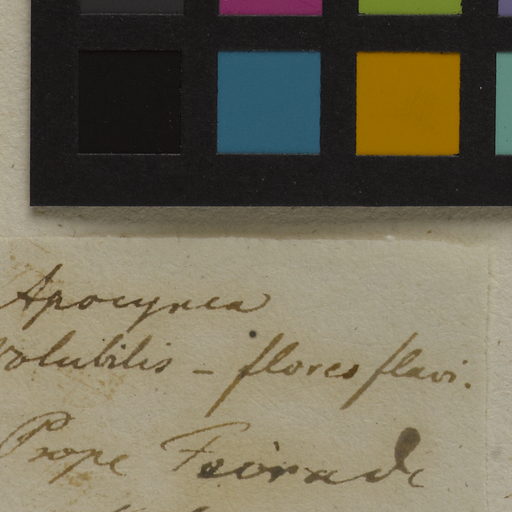 Apocynea
volubilis – flores flavi.
Prope